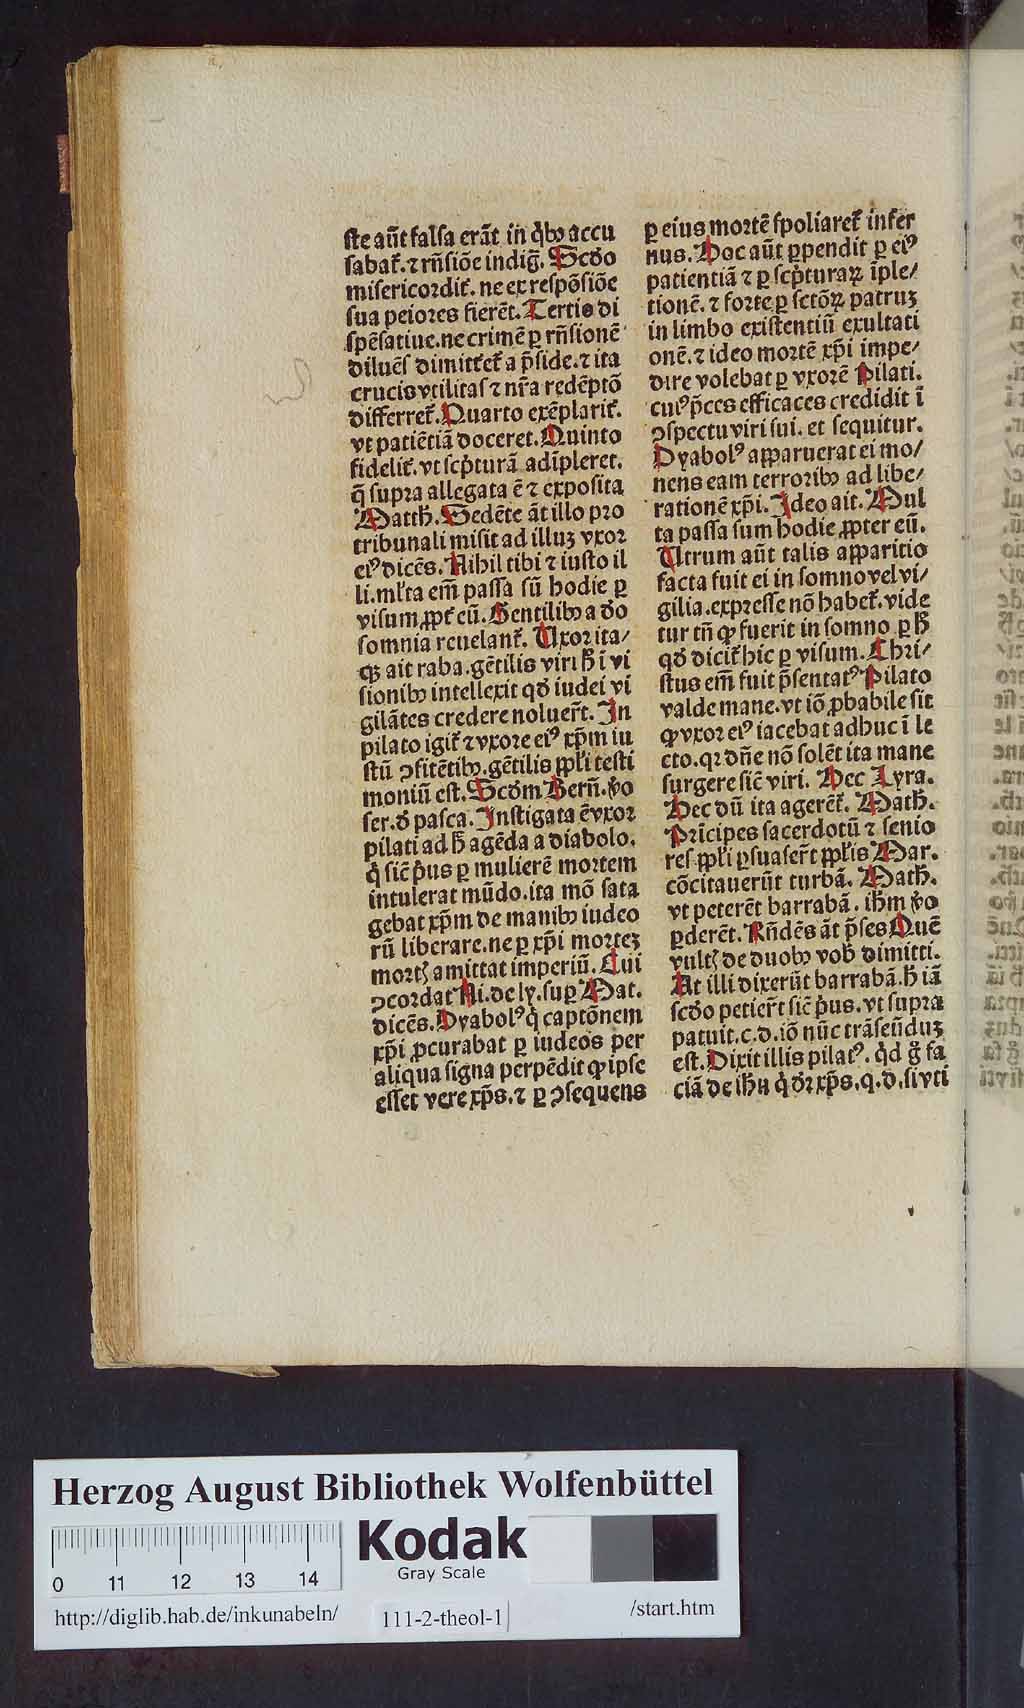 ſte aūt falſa erāt in qͥbꝰ accu
ſabat᷑. ⁊ rn̄ſiōe indig̅. Scd̓o
miſericordit᷑. ne ex reſpōſiōe
ſua peiores fierēt. Tertio di
ſpēſatiue. ne crimē ꝑ rn̄ſionē
diluēſ dimitt᷑et᷑ a p̄ſide. ⁊ ita
crucis vtilitaſ ⁊ nr̄a redēptō
differret᷑. Quarto exēplarit᷑.
vt patiētiā doceret. Quinto
fidelit᷑. vt ſcp̄turā adīpleret.
q̄ ſupra allegata ē ⁊ expoſita
Matth̄. Sedēte āt illo pro
tribunali miſit ad illuꝫ vxor
eiꝰ dicēs. Nihil tibi ⁊ iuſto il
li. ml̓ta em̄ paſſa ſū hodie ꝑ
viſum ꝓpt᷑ eū. Gentilibꝰ a do
ſomnia reuelant᷑. Uxor ita/
qꝫ ait raba. gētilis viri h̄ ī vi
ſionibꝰ intellexit qd̓ iudei vi
gilātes credere noluer̄t. In
pilato igit᷑ ⁊ vxore eiꝰ xp̄m iu
ſtū ꝯfitētibꝰ. gētilis ppl̓i teſti
moniū eſt. Scd̓m Bern̄. v̓o
ſer. d̓ paſca. Inſtigata ē vxor
pilati ad h̄ agēda a diabolo.
qͥ ſic̄ pͥus ꝑ mulierē mortem
intulerat mūdo. ita mō ſata
gebat xp̄m de manibꝰ iudeo
rū liberare. ne ꝑ xp̄i morteꝫ
mortꝭ amittat imperiū. Cui
ꝯcordat Ni. de ly. ſuꝑ Mat.
dicēs. Dyabolꝰ qͥ captōnem
xp̄i ꝓcurabat ꝑ iudeos per
aliqua ſigna perpēdit ꝙ ipſe
eſſet vere xp̄s. ⁊ ꝑ ꝯſequens
ꝑ eius mortē ſpoliaret᷑ infer
nus. Hoc aūt ꝑpendit ꝑ eiꝰ
patientiā ⁊ ꝑ ſcp̄turaꝝ īple/
tionē. ⁊ forte ꝑ ſctōꝝ patruꝫ
in limbo exiſtentiū exultati
onē. ⁊ ideo mortē xp̄i impe/
dire volebat ꝑ vxorē Pilati.
cuiꝰ p̄ces efficaces credidit ī
ꝯſpectu viri ſui. et ſequitur.
Dyabolꝰ apparuerat ei mo/
nens eam terroribꝰ ad libe/
rationē xp̄i. Ideo ait. Mul
ta paſſa ſum hodie ꝓpter eū.
Utrum aūt talis apparitio
facta fuit ei in ſomno vel vi/
gilia. expreſſe nō habet᷑. vide
tur tn̄ ꝙ fuerit in ſomno ꝑ h̄
qd̓ dicit᷑ hic ꝑ viſum. Chri/
ſtus em̄ fuit p̄ſentatꝰ Pilato
valde mane. vt iō ꝓbabile ſit
ꝙ vxor eiꝰ iacebat adhuc ī le
cto. qꝛ dn̄e nō ſolēt ita mane
ſurgere ſic̄ viri. Hec Lyra.
Hec dū ita agerēt᷑. Math̄.
Prīcipes ſacerdotū ⁊ ſenio
reſ ppl̓i ꝑſuaſer̄t ppl̓is Mar.
cōcitauerūt turbā. Math̄.
vt peterēt barrabā. ih̄m v̓o
ꝑderēt. Rn̄dēs āt p̄ſes Quē
vultꝭ de duobꝰ vob̄ dimitti.
At illi dixerūt barrabā. h̄ iā
ſcd̓o petier̄t ſic̄ pͥus. vt ſupra
patuit. c. d. iō nūc trāſeūduꝫ
eſt. Dixit illis pilatꝰ. qͥd g̊ fa
ciā de ih̄u qͥ dr̄ xp̄s. q. d. ſi vti
Herzog August Bibliothek Wolfenbüttel
0 11 12 13 14
Kodak
Gray Scale
http://diglib.hab.de/inkunabeln/
111-2-theol-1
/start.htm